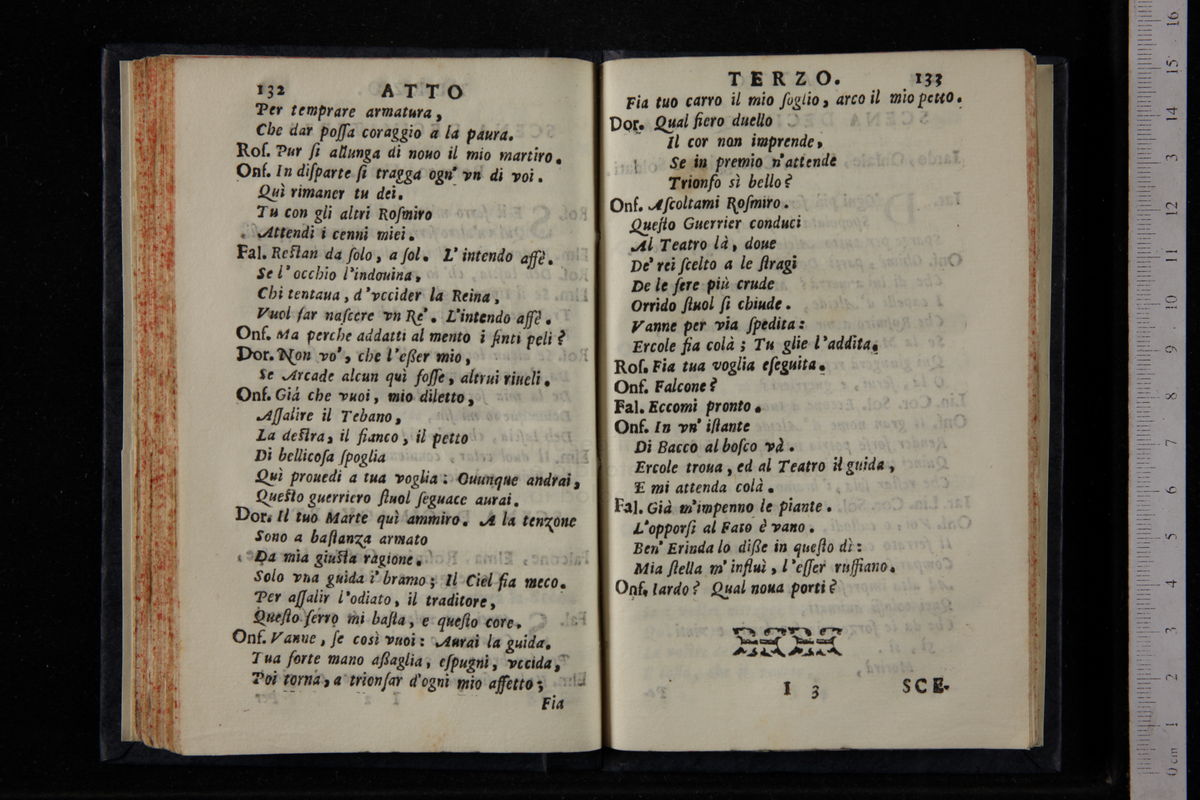 132 ATTO
Per temprare armatura,
Che dar poſſa coraggio a la paura.
Roſ. Pur ſi allunga di nouo il mio martiro.
Onf. In diſparte ſi tragga ogn' vn di voi.
Quì rimaner tu dei.
Tu con gli altri Roſmiro
Attendi i cenni miei.
Fal. Reſtan da ſolo, a ſol. L'intendo affè.
Se l'occhio l'indouina,
Chi tentaua, d'vccider la Reina,
Vuol far naſcere vn Re'. L'intendo affè.
Onf. Ma perche addatti al mento i finti peli?
Dor. Non vo', che l'eßer mio,
Se Arcade alcun quì foſſe, altrui riueli.
Onf. Già che vuoi, mio diletto,
Aſſalire il Tebano,
La deſtra, il fianco, il petto
Di bellicoſa ſpoglia
Quì prouedi a tua voglia: Ouunque andrai,
Queſto guerriero ſtuol ſeguace aurai.
Dor. Il tuo Marte quì ammiro. A la tenzone
Sono a baſtanza armato
Da mia giuſta ragione.
Solo vna guida i' bramo; Il Ciel fia meco.
Per aſſalir l'odiato, il traditore,
Queſto ferro mi baſta, e queſto core.
Onf. Vanne, ſe così vuoi: Aurai la guida.
Tua forte mano aßaglia, eſpugni, vccida,
Poi torna, a trionfar d'ogni mio affetto;
Fia
TERZO. 133
Fia tuo carro il mio ſoglio, arco il mio petto.
Dor. Qual fiero duello
Il cor non imprende,
Se in premio n'attende
Trionfo sì bello?
Onf. Aſcoltami Roſmiro.
Queſto Guerrier conduci
Al Teatro là, doue
De' rei ſcelto a le ſtragi
De le fere più crude
Orrido ſtuol ſi chiude.
Vanne per via ſpedita:
Ercole fia colà; Tu glie l'addita.
Roſ. Fia tua voglia eſeguita.
Onf. Falcone?
Fal. Eccomi pronto.
Onf. In vn' iſtante
Di Bacco al boſco và.
Ercole troua, ed al Teatro il guida,
E mi attenda colà.
Fal. Già m'impenno le piante.
L'opporſi al Fato è vano.
Ben' Erinda lo diße in queſto dì:
Mia ſtella m'influì, l'eſſer ruffiano.
Onf. Iardo? Qual noua porti?
I 3 SCE-